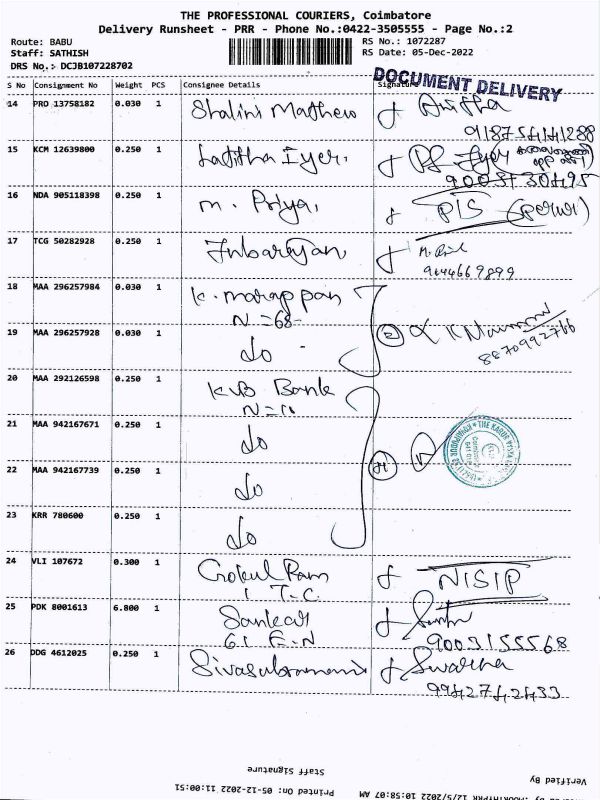 THE PROFESSIONAL COURIERS, Coimbatore
Delivery Runsheet - PRR - Phone No.:0422-3505555 - Page No.:2
Route: BABU RS No.: 1072287
Staff: SATHISH RS Date: 05-Dec-2022
DRS No.: DCJB107228702
DOCUMENT DELIVERY
S No Consignment No Weight PCS Consignee Details Signature
14 PRO 13758182 0.030 1 Shalini Mathew
15 KCM 12639800 0.250 1 Lalitha Iyer.
16 NDA 905118398 0.250 1 M. Priya, PIS
17 TCG 50282928 0.250 1
9644669899
18 MAA 296257984 0.030 1 K. Marappan
N = 68
19 MAA 296257928 0.030 1 do
8870992766
20 MAA 292126598 0.250 1 KVB Bank
21 MAA 942167671 0.250 1 do
22 MAA 942167739 0.250 1 do
23 KRR 780600 0.250 1 do
24 VLI 107672 0.300 1 Gokul Ram NISIP
25 PDK 8001613 6.800 1 Sankar
9003155568
26 DDG 4612025 0.250 1 Swarna
9942742433
Staff Signature
Verified By
Printed On: 05-12-2022 11:00:51
12/5/2022 10:58:07 AM